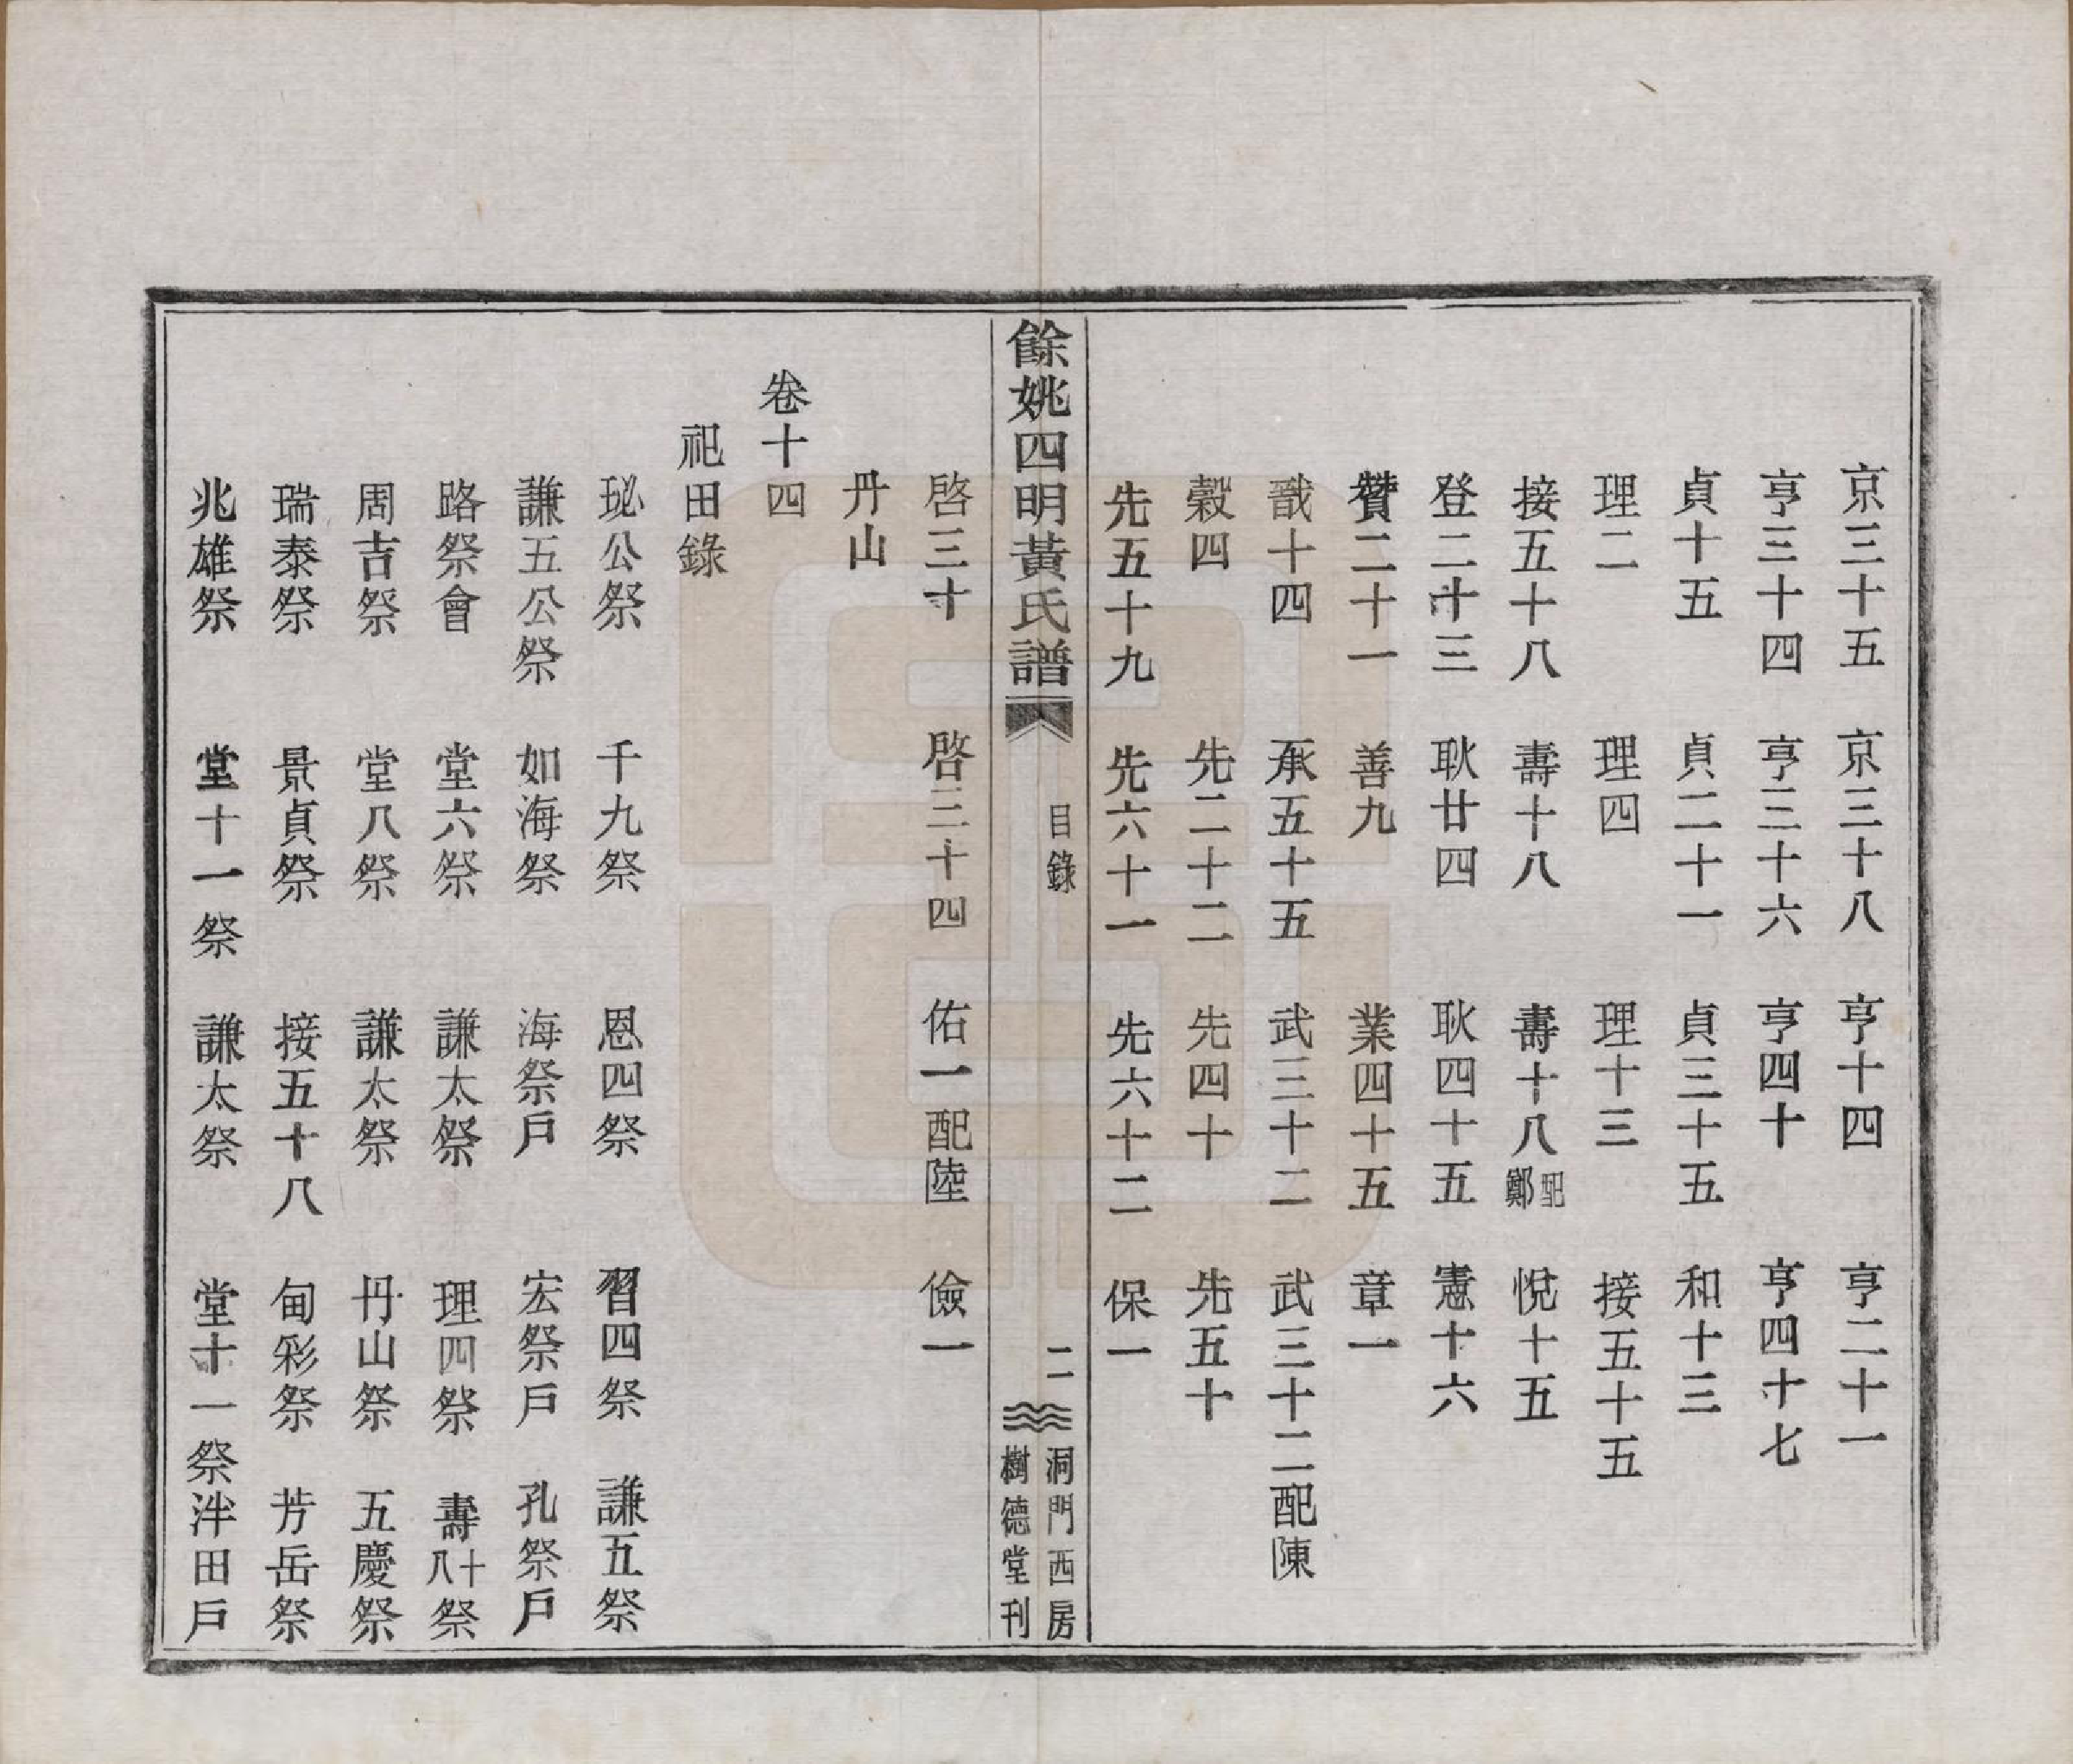 京三十五　京三十八　亨十四　亨二十一
亨三十四　亨三十六　亨四十　亨四十七
貞十五　貞二十一　貞三十五　和十三
理二　理四　理十三　接五十五
接五十八　壽十八　壽十八配鄭　悅十五
登二十三　耿廿四　耿四十五　憲十六
贊二十一　善九　業四十五　章一
戩十四　承五十五　武三十二　武三十二配陳
穀四　先二十二　先四十　先五十
先五十九　先六十一　先六十二　保一
餘姚四明黃氏譜　目錄　二　洞門西房
樹德堂刊
啓三十　啓三十四　佑一配陸　儉一
丹山
卷十四
祀田錄
珌公祭　千九祭　恩四祭　習四祭　謙五祭
謙五公祭　如海祭　海祭戶　宏祭戶　孔祭戶
路祭會　堂六祭　謙太祭　理四祭　壽十八祭
周吉祭　堂八祭　謙太祭　丹山祭　五慶祭
瑞泰祭　景貞祭　接五十八　甸彩祭　芳岳祭
兆雄祭　堂十一祭　謙太祭　堂十一祭泮田戶